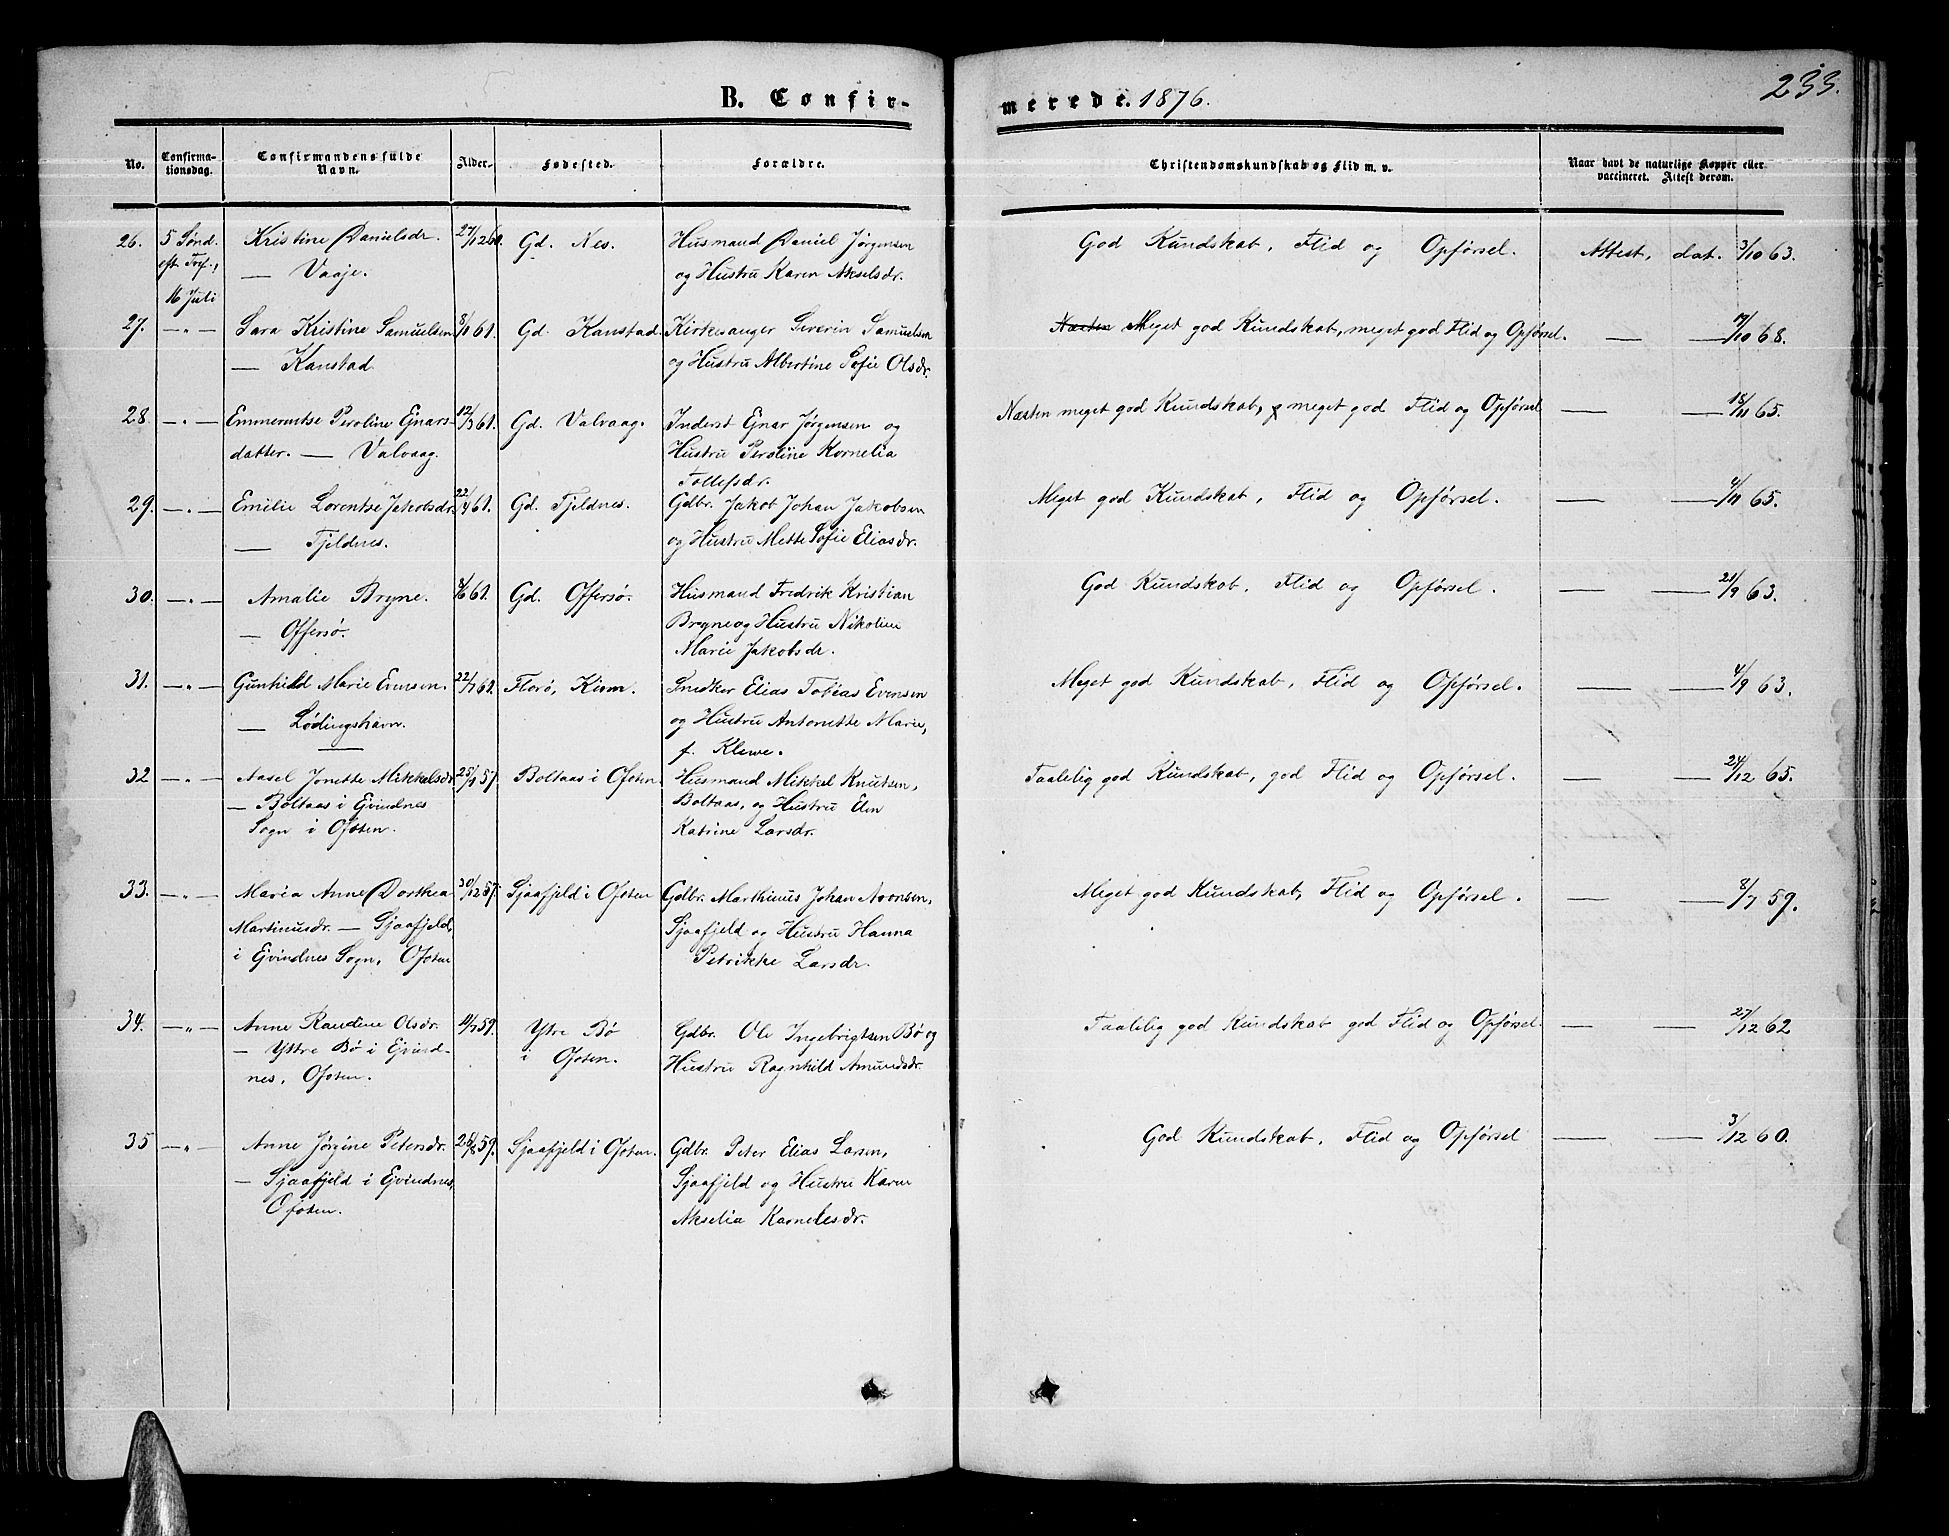 233.
B. Confir-
merede. 1876.
No.
Confirma-
tionsdag.
Confirmandens fulde
Navn.
Alder.
Fødested.
Forældre.
Christendomskundskab og Flid m. v.
Naar havt de naturlige Kopper eller
vaccineret. Attest derom.
26. 5 Sønd. Kristine Danielsdr. 27/12 60. Gd. Nes. Husmand Daniel Jørgensen God Kundskab, Flid og Opførsel. Attest, dat. 3/10 63.
eft. Tref., — Vaaje. og Hustru Karen Akselsdr.
16 Juli
27. —„— Sara Kristine Samuelsen 8/1 61. Gd. Kanstad. Kirkesanger Severin Samuelsen Næsten Meget god Kundskab, meget god Flid og Opførsel. — — 17/10 68.
— Kanstad og Hustru Albertine Sofie Olsdr.
28 —„— Emmerentse Peroline Ejnars- 12/3 61. Gd. Valvaag. Inderst Ejnar Jørgensen og Næsten meget god Kundskab, meget god Flid og Opførsel — — 18/11 65.
datter. — Valvaag. Hustru Peroline Kornelia
Tollefsdr.
29. —„— Emilie Lorentse Jakobsdr. 22/4 61. Gd. Fjeldnes. Gdbr. Jakob Johan Jakobsen Meget god Kundskab, Flid og Opførsel. — — 4/11 65.
— Fjeldnes. og Hustru Mette Sofie Eliasdr.
30. —„— Amalie Bryne. 8/6 61. Gd. Offersø. Husmand Fredrik Kristian God Kundskab, Flid og Opførsel. — — 21/9 63.
— Offersø. Bryne og Hustru Nikoline
Marie Jakobsdr.
31. —„— Gunhild Marie Evensen. 22/7 61. Florø, Kinn. Snedker Elias Tobias Evensen Meget god Kundskab, Flid og Opførsel. — — 4/9 63.
— Lødingshavn. og Hustru Antonette Marie,
f. Klewe.
32 —„— Aasel Jonette Mikkelsdr. 25/9 57. Boltaas i Ofoten. Husmand Mikkel Knutsen, Taalelig god Kundskab, god Flid og Opførsel. — — 24/12 65.
— Boltaas i Ejvindnes Boltaas, og Hustru Elen
Sogn i Ofoten. Katrine Larsdr.
33. —„— Maria Anne Dorthea 30/12 57. Sjaafjeld i Ofoten Gdbr. Marthinus Johan Aronsen, Meget god Kundskab, Flid og Opførsel. — — 8/7 59.
Martinusdr. — Sjaafjeld, Sjaafjeld og Hustru Hanna
i Ejvindnes Sogn, Ofoten Petrikke Larsdr.
34. —„— Anne Randine Olsdr. 4/7 59. Ytre Bø Gdbr. Ole Ingebrigtsen Bø og Taalelig god Kundskab god Flid og Opførsel. — — 27/12 62
— Yttre Bø i Ejvind- i Ofoten. Hustru Ragnhild Amundsdr.
nes, Ofoten.
35 —„— Anne Jørgine Petersdr. 59. Sjaafjeld i Ofoten. Gdbr. Peter Elias Larsen, God Kundskab, Flid og Opførsel — — 3/12 60.
— Sjaafjeld i Ejvindnes, Sjaafjeld og Hustru Karen
Ofoten. Akselia Kornelesdr.